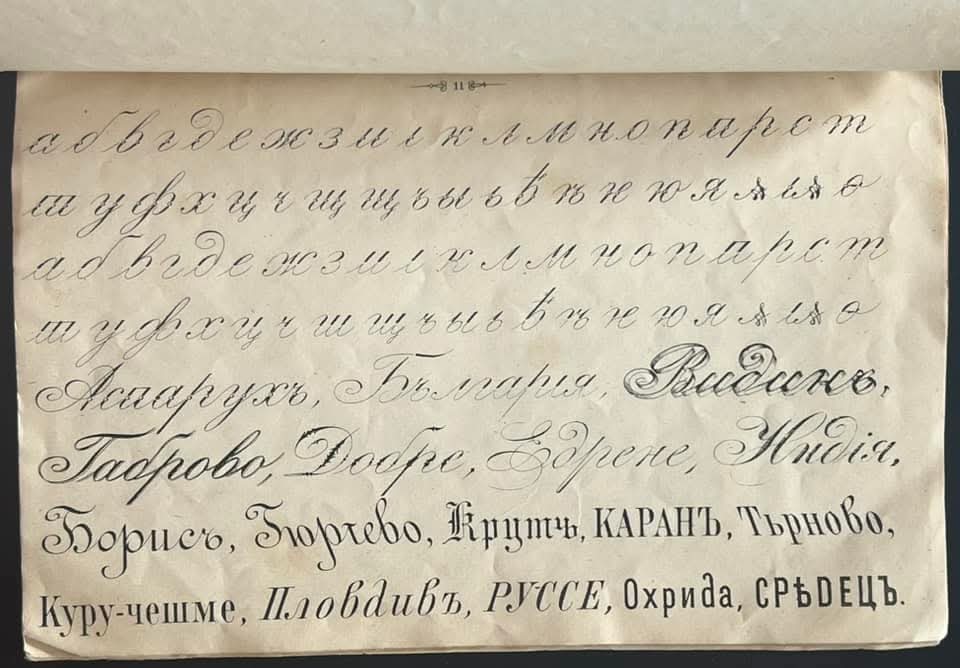 11
а б в г д е ж з и і к л м н о п п р с т
т у ф х ц ч ш щ ъ ы ь ѣ ю я ѫ ѭ ѳ
а б в г д е ж з и і к л м н о п п р с т
т у ф х ц ч ш щ ъ ы ь ѣ ю я ѫ ѭ ѳ
Аспарухъ, България, Видинъ,
Габрово, Добре, Едрене, Индія,
Борисъ, Гюргево, Крумъ, КАРАНЪ, Търново,
Куру-чешме, Пловдивъ, РУССЕ, Охрида, СРѢДЕЦЪ.